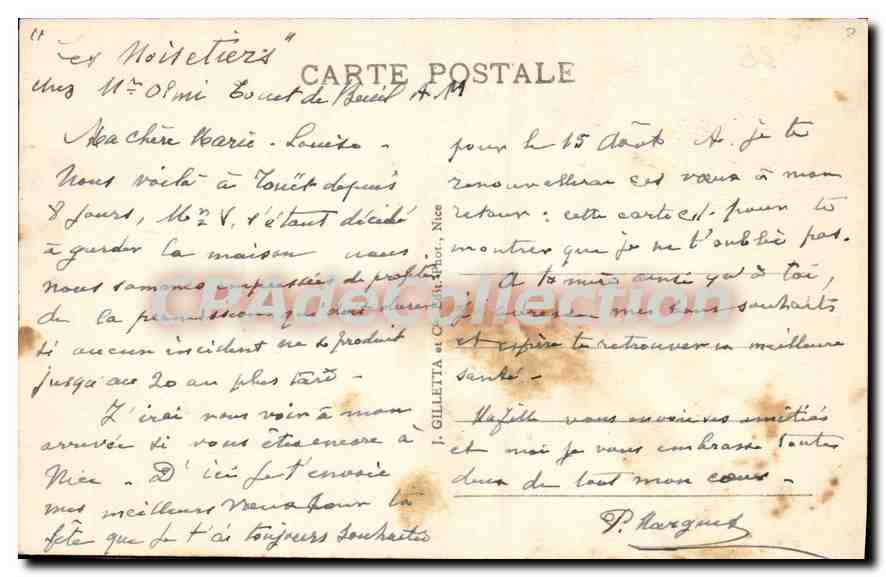 "Les Noisetiers"
CARTE POSTALE
chez Mr Olmi Touet de Beuil A M
Ma chère Marie-Louise -
Nous voilà à Touët depuis
8 jours, Mme V. s'étant décidé
à garder la maison nous
nous sommes empressées de profiter
de la permission qui doit durer
si aucun incident ne se produit
jusqu'au 20 au plus tard -
J'irai vous voir à mon
arrivée si vous êtes encore à
Nice - D'ici je t'envoie
mes meilleurs vœux pour ta
fête que je t'ai toujours souhaitée
pour le 15 Août je te
renouvellerai ces vœux à mon
retour : cette carte est pour te
montrer que je ne t'oublie pas.
A ta mère ainsi qu'à toi,
j'adresse mes bons souhaits
et espère te retrouver en meilleure
santé -
Ma fille vous envoie ses amitiés
et moi je vous embrasse toutes
deux de tout mon cœur -
J. GILLETTA et Cie, Edit. Phot., Nice
CPAdeCollection